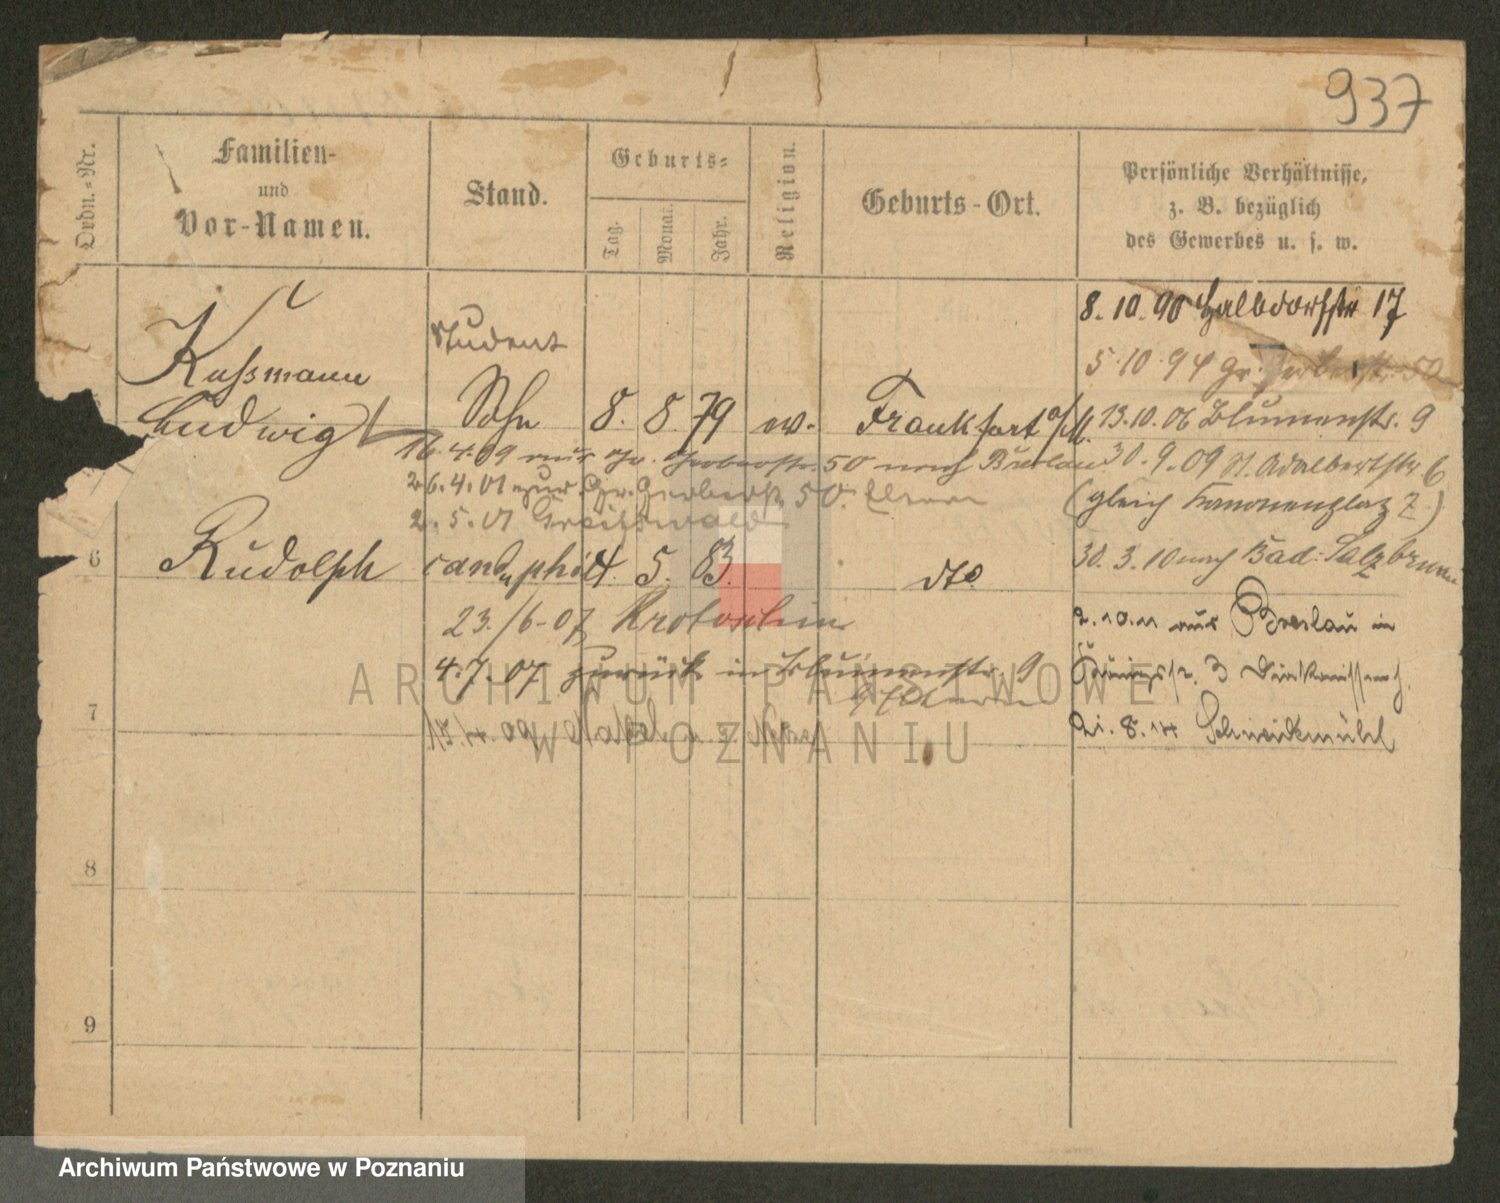 937
Ordn.-Nr.
Familien-
und
Vor-Namen.
Stand.
Geburts-
Tag.
Monat.
Jahr.
Religion.
Geburts-Ort.
Persönliche Verhältnisse,
z. B. bezüglich
des Gewerbes u. s. w.
8. 10. 90 Halbdorfstr 17
Student
5. 10. 94 Gr. Gerberstr. 50
Kussmann
Ludwig Sohn 8. 8. 79 ev. Frankfurt a/M. 13. 10. 06 Blumenstr. 9
16. 4. 09 aus Gr. Gerberstr. 50 nach Breslau 30. 9. 09 St. Adalbertstr 6
26. 4. 01 zur Gr. Gerberstr 50. Eltern (gleich Kanonenplatz 2)
2. 5. 01 Greifswald
6 Rudolph cand. phil 4. 5. 83. dto. 30. 3. 10 nach Bad. Salzbrunn
23./6. 07 Krotoschin 2. 10. 11 aus Breslau in
4. 7. 07 zurück in Blumenstr. 9 3
Eltern
7 17. 4. 09 21. 8. 14 Schneidemühl
8
9
ARCHIWUM PAŃSTWOWE
W POZNANIU
Archiwum Państwowe w Poznaniu